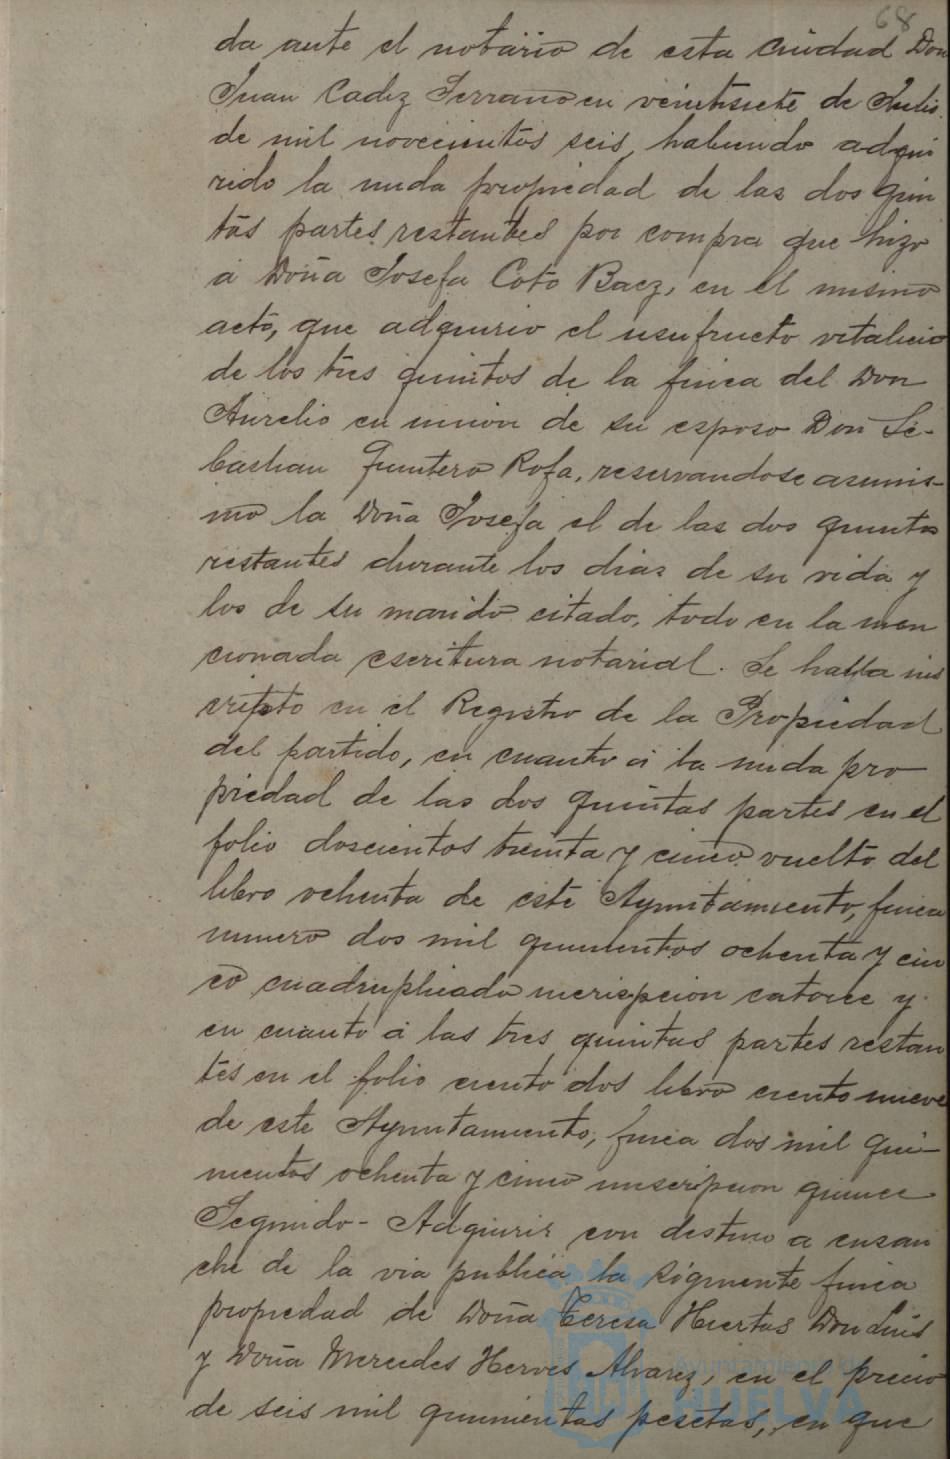 68
da ante el notario de esta Ciudad Don
Juan Cadiz Serrano en veintisiete de Julio
de mil novecientos seis, habiendo adqui
rido la nuda propiedad de las dos quin
tas partes restantes por compra que hizo
a Doña Josefa Coto Baez, en el mismo
acto, que adquirio el usufructo vitalicio
de los tres quintos de la finca del Don
Aurelio en union de su esposo Don Se-
bastian Quintero Rofa, reservandose asimis-
mo la Doña Josefa el de las dos quintas
restantes durante los dias de su vida y
los de su marido citado, todo en la men
cionada escritura notarial. Se halla ins
cripto en el Registro de la Propiedad
del partido, en cuanto á la nuda pro
piedad de las dos quintas partes en el
folio doscientos treinta y cinco vuelto del
libro ochenta de este Ayuntamiento, finca
numero dos mil quinientos ochenta y cin
co cuadruplicado inscripcion catorce y
en cuanto á las tres quintas partes restan
tes en el folio ciento dos libro ciento nueve
de este Ayuntamiento, finca dos mil qui-
nientos ochenta y cinco inscripcion quince
Segundo - Adquirir con destino a ensan
che de la via publica la siguiente finca
propiedad de Doña Teresa Huertas Don Luis
y Doña Mercedes Herves Alvarez, en el precio
de seis mil quinientas pesetas, en que
Ayuntamiento de
HUELVA